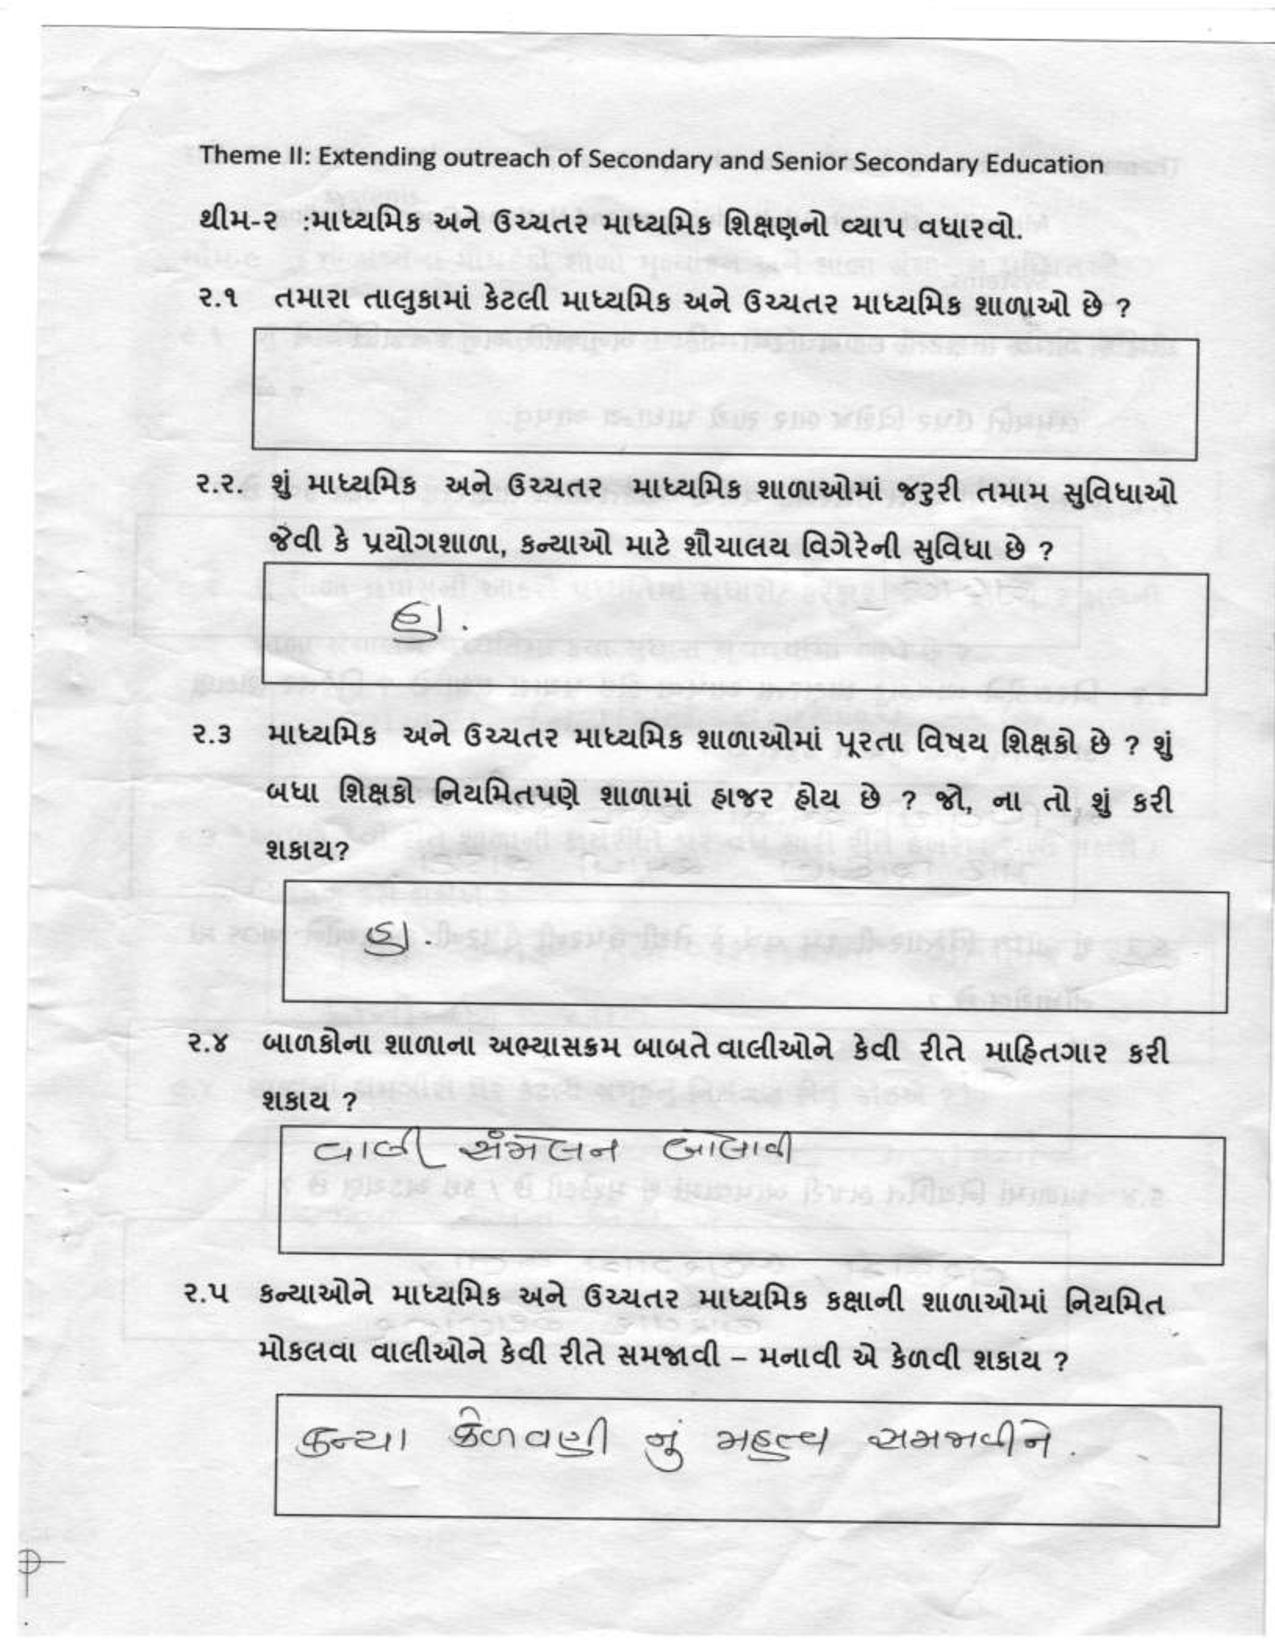 Theme II: Extending outreach of Secondary and Senior Secondary Education
થીમ-૨ :માધ્યમિક અને ઉચ્ચતર માધ્યમિક શિક્ષણનો વ્યાપ વધારવો.
૨.૧ તમારા તાલુકામાં કેટલી માધ્યમિક અને ઉચ્ચતર માધ્યમિક શાળાઓ છે ?
૨.૨. શું માધ્યમિક અને ઉચ્ચતર માધ્યમિક શાળાઓમાં જરુરી તમામ સુવિધાઓ
જેવી કે પ્રયોગશાળા, કન્યાઓ માટે શૌચાલય વિગેરેની સુવિધા છે ?
હા.
૨.૩ માધ્યમિક અને ઉચ્ચતર માધ્યમિક શાળાઓમાં પૂરતા વિષય શિક્ષકો છે ? શું
બધા શિક્ષકો નિયમિતપણે શાળામાં હાજર હોય છે ? જો, ના તો શું કરી
શકાય?
હા.
૨.૪ બાળકોના શાળાના અભ્યાસક્રમ બાબતે વાલીઓને કેવી રીતે માહિતગાર કરી
શકાય ?
વાલી સંમેલન બોલાવી
૨.૫ કન્યાઓને માધ્યમિક અને ઉચ્ચતર માધ્યમિક કક્ષાની શાળાઓમાં નિયમિત
મોકલવા વાલીઓને કેવી રીતે સમજાવી – મનાવી એ કેળવી શકાય ?
કન્યા કેળવણી નું મહત્વ સમજાવીને.